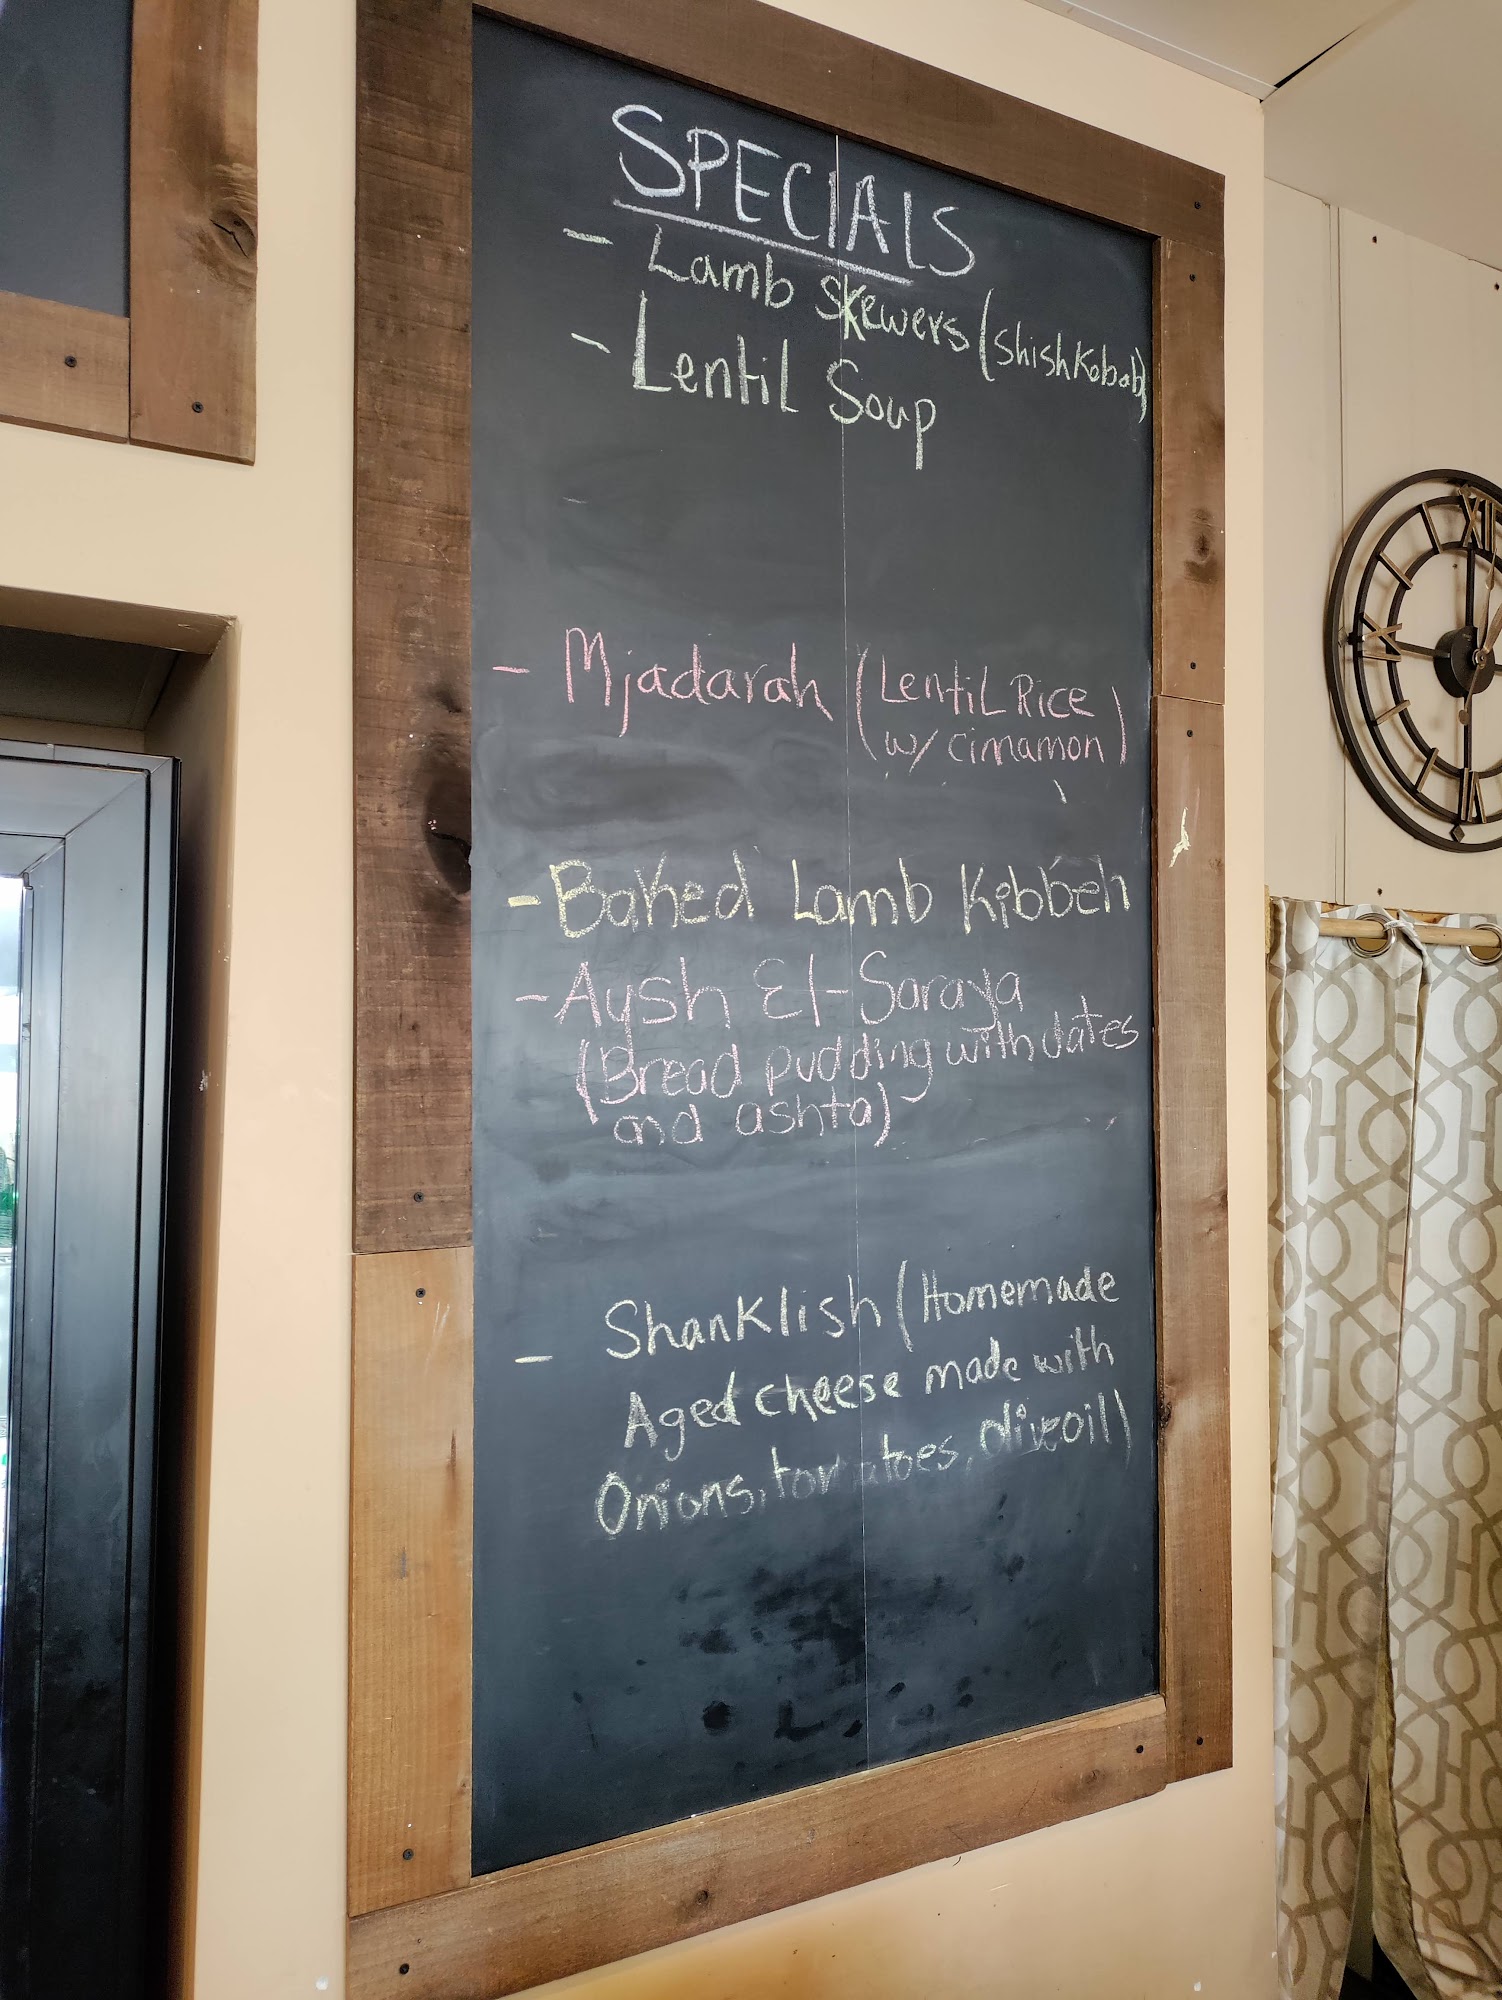 SPECIALS
- Lamb Skewers (Shish Kobab)
- Lentil Soup
- Mjadarah (Lentil Rice
w/ cinnamon)
- Baked Lamb Kibbeh
- Aysh El-Saraya
(Bread pudding with dates
and ashta)
- Shanklish (Homemade
Aged cheese made with
Onions, tomatoes, olive oil)
XII